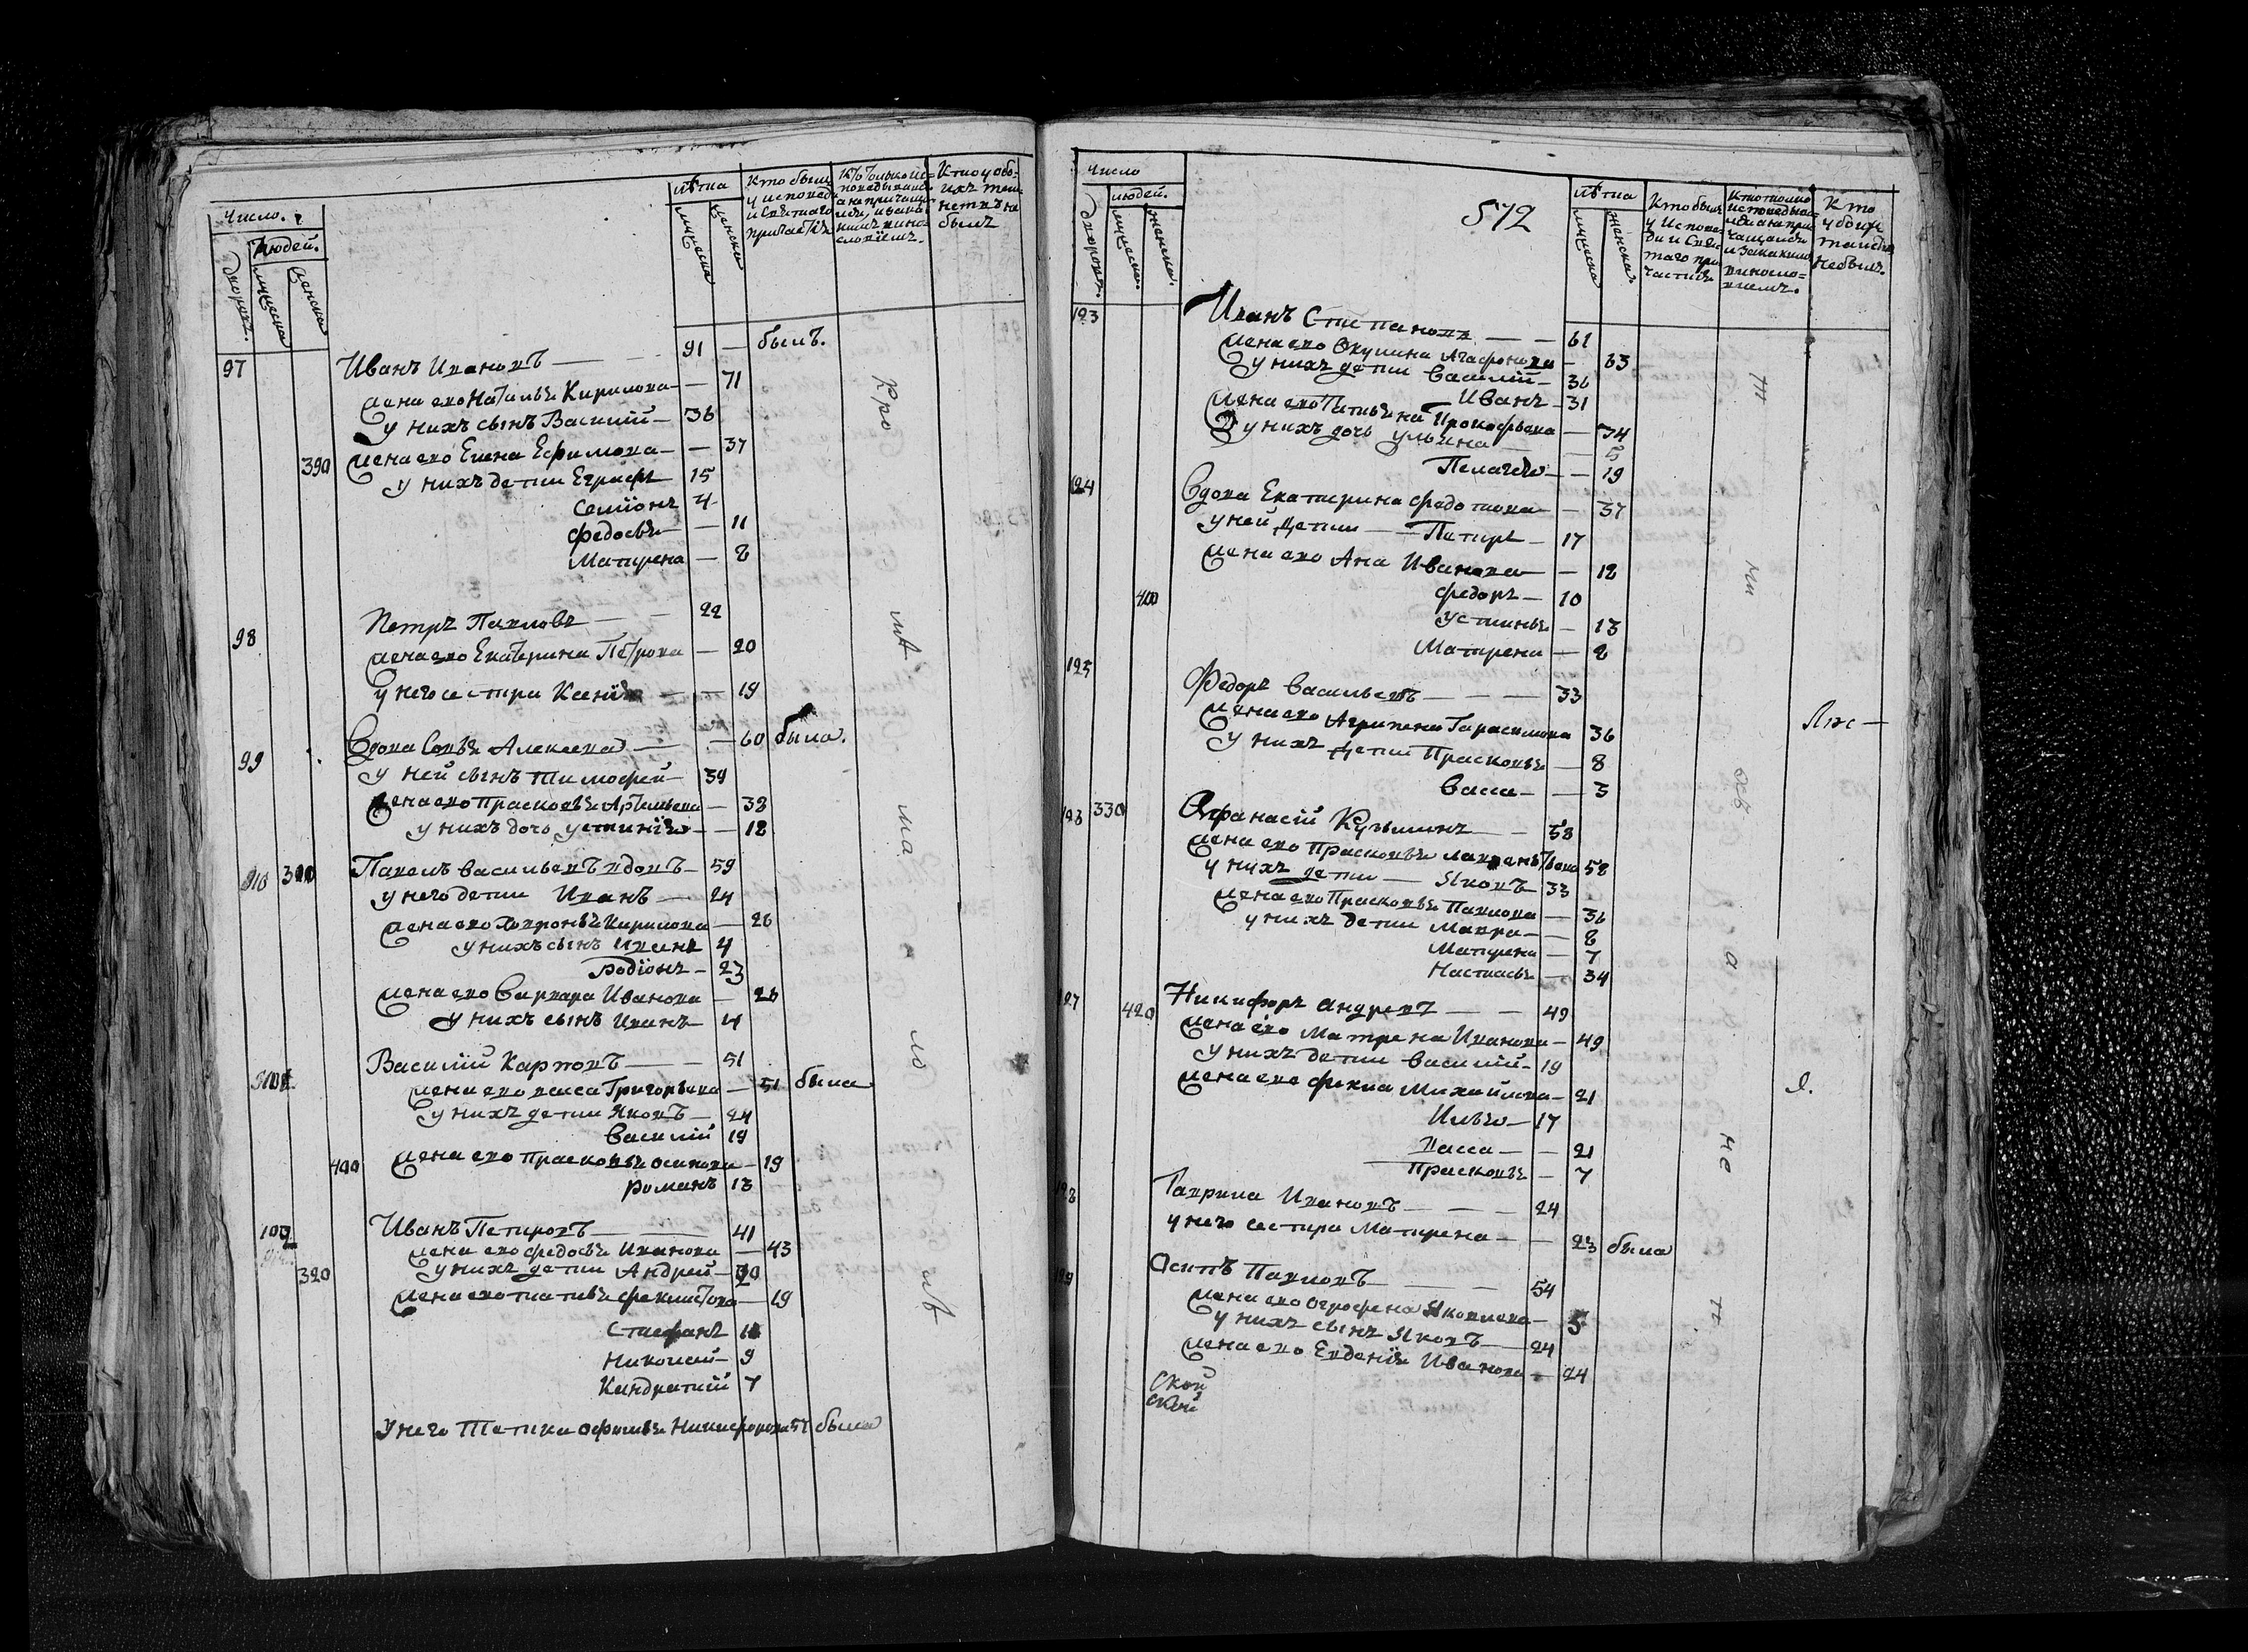 Число.
Людей.
дворовъ.
мужеска
женска
лѣта
мужеска
женска
Кто былъ
у исповеди
и Святаго
причастія
Кто только ис=
поведывался
а не причащал
ся, и за ка=
кимъ вино=
словіемъ.
Кто у обо=
ихъ таи=
нствъ не
былъ
97 Иванъ Ивановъ — 91 — былъ.
жена ево Наталья Кирилова — 71
у нихъ сынъ Василій — 36
390 жена ево Елена Ефимова — — 37
у нихъ дети Еграфъ 15
Семіонъ 4
Федосья — — 11
Матрена — 8
98 Петръ Павловъ — — 22
жена ево Екатерина Петрова — 20
у него сестра Ксенія — — 19
99 Вдова Софья Алексеева — — 60 была.
у ней сынъ Тимофей — 39
жена ево Прасковья Артемьева — 38
у нихъ дочь Устинія — — 18
Павелъ Васильевъ вдовъ — 59
у него дети Иванъ — 24
жена ево Ховронья Кирилова — 26
у нихъ сынъ 4
Родіонъ — 23
жена ево Варвара Иванова — 26
у нихъ сынъ Иванъ — 4
Василій Карповъ — — 51
жена ево Васса Григорьева — 51 была
у нихъ дети Яковъ — 24
Василій 19
400 жена ево Прасковья Осипова — 19
Романъ 13
Иванъ Петровъ — 41
жена ево Федосья Иванова — 43
у нихъ дети Андрей — 20
320 жена ево Наталья Феклистова — 19
Стефанъ
Николай — 9
Кандратий 7
У него Тетка Офимья Никифорова 57 была
Кро
мѣ
ма
ло
лѣ
Число
людей.
дворовъ.
мужеска.
женска.
572
лѣта
мужеска
женска
Кто былъ
у Испове=
ди и Свя
таго при
частія
Кто только
исповедыва=
лся а не при
чащался
и за какимъ
виносло=
виемъ.
Кто
у обоих
таинств
небылъ.
123 Иванъ Степановъ — — 61
жена ево Окулина Агафонова — 63
у нихъ дети Василій — 36
Иванъ — 31
жена ево Татьяна Прокофьева — 34
у нихъ дочь Ульяна — 5
Пелагея — — 19
124 Вдова Екатерина Федотова — — 57
у ней дети — Петръ — 17
жена ево Ана Иванова — — 18
400 Федоръ — 10
Устинья — 13
Матрена — 8
125 Федоръ Васильевъ — — — 33
жена ево Агрипена Гарасимова 36
у нихъ дети Прасковья — 8
Васса — — 3
126 330 Афанасій Кузьминъ — — 58
жена ево Прасковья Лаврентьева 58
у нихъ дети — Яковъ — 33
жена ево Прасковья Павлова — 36
у нихъ дети Мавра — — 8
Матрена — 7
Настасья — 34
127 420 Никифоръ Андревъ — — 49
жена ево Матрена Иванова — 49
у нихъ дети Василій — 19
жена ево Фекла Михайлова — 21
Илья — 17
Васса — — 21
Прасковья — 7
128 Гаврила Ивановъ — — — 24
у него сестра Матрена — — 23 была
129 Осипъ Павловъ — — — 54
жена ево Огрофена Яковлева —
у нихъ сынъ Яковъ — 24
жена ево Евдения Иванова — 24
ской
ской